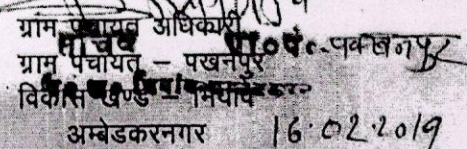 ग्राम पंचायत अधिकारी
सचिव ग्रा०पं०-पखनपुर
ग्राम पंचायत – पखनपुर
विकास खण्ड – भियांव
अम्बेडकरनगर 16.02.2019